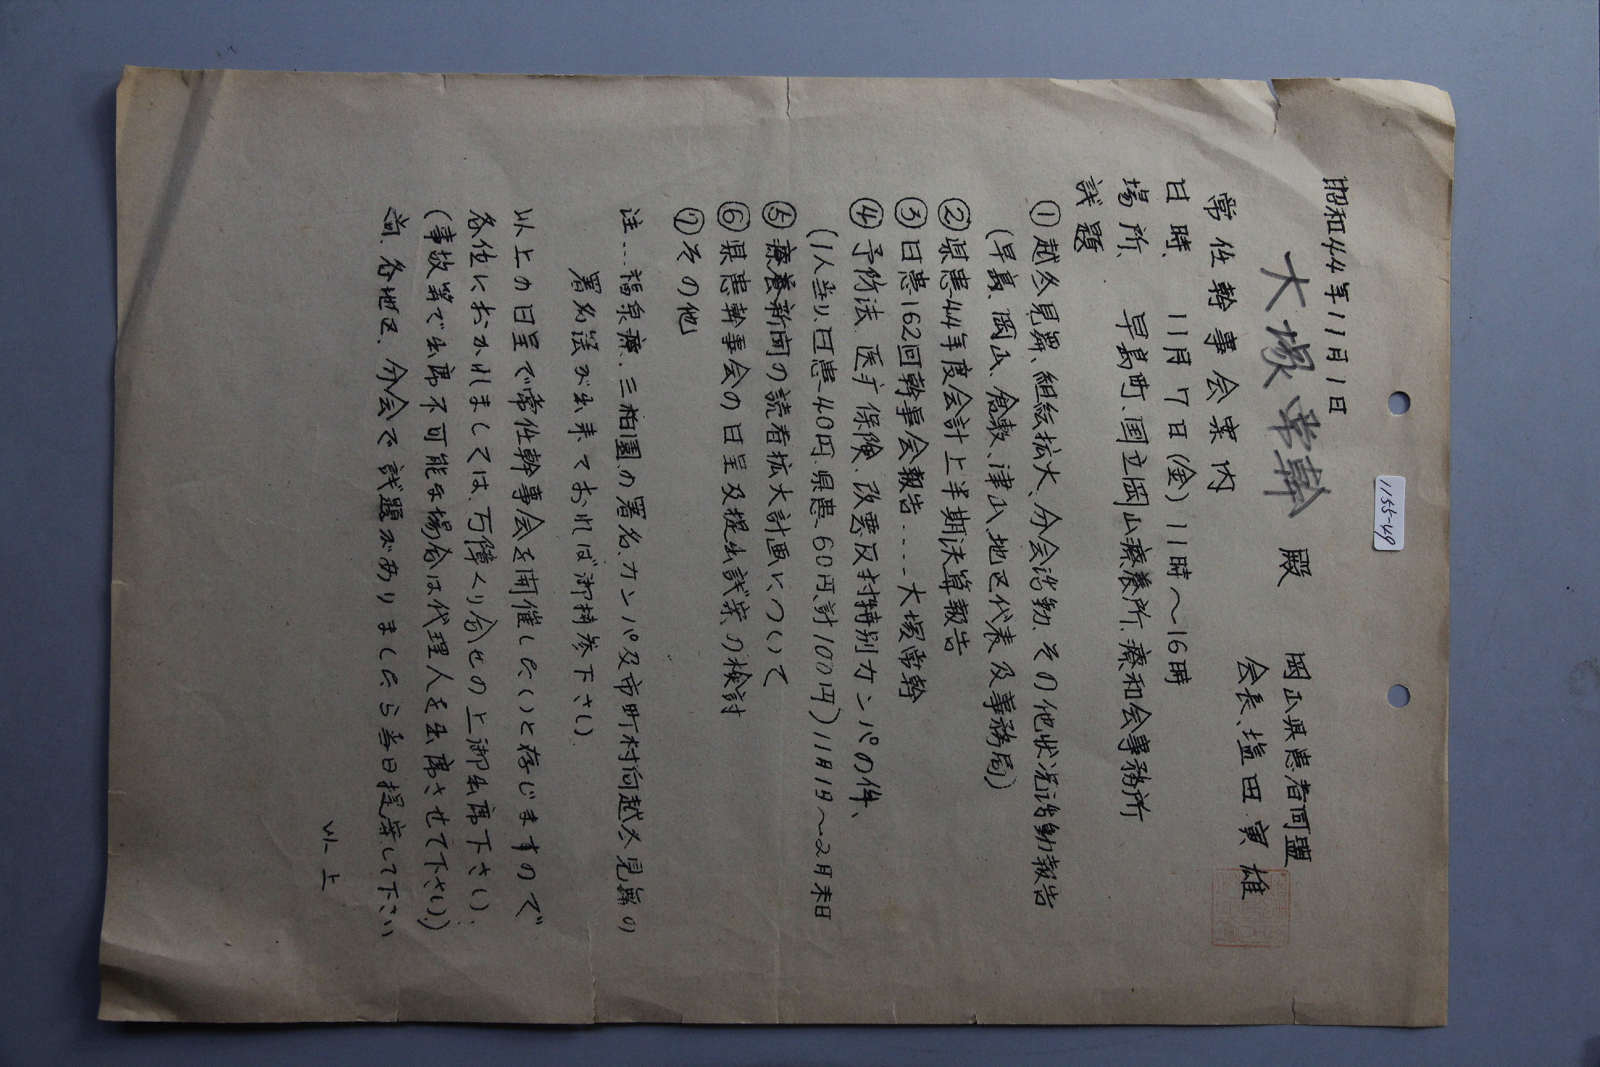 昭和44年11月1日
大塚常幹 殿
岡山県患者同盟
会長、塩田寅雄
常任幹事会案内
日時、 11月7日(金)11時〜16時
場所、 早島町、国立岡山療養所、療和会事務所
議題
①越冬見舞、組織拡大、分会活動、その他状況活動報告
(早島、岡山、倉敷、津山、地区代表及事務局)
②県患44年度会計上半期決算報告
③日患162回幹事会報告....大塚常幹
④予防法、医疗保険、改悪反対特別カンパの件、
(1人当り、日患40円、県患60円、計100円)11月1日〜2月末日
⑤療養新聞の読者拡大計画について
⑥県患幹事会の日呈及提出議案の検討
⑦その他
注...福泉療、三柏園の署名、カンパ及市町村向越冬見舞の
署名送が出来ておれば御持参下さい。
以上の日呈で常任幹事会を開催したいと存じますので
各位におかれましては、万障くり合せの上御出席下さい。
(事故等で出席不可能な場合は代理人を出席させて下さい。)
尚、各地区、分会で議題がありましたら当日提案して下さい
以上
1155-49